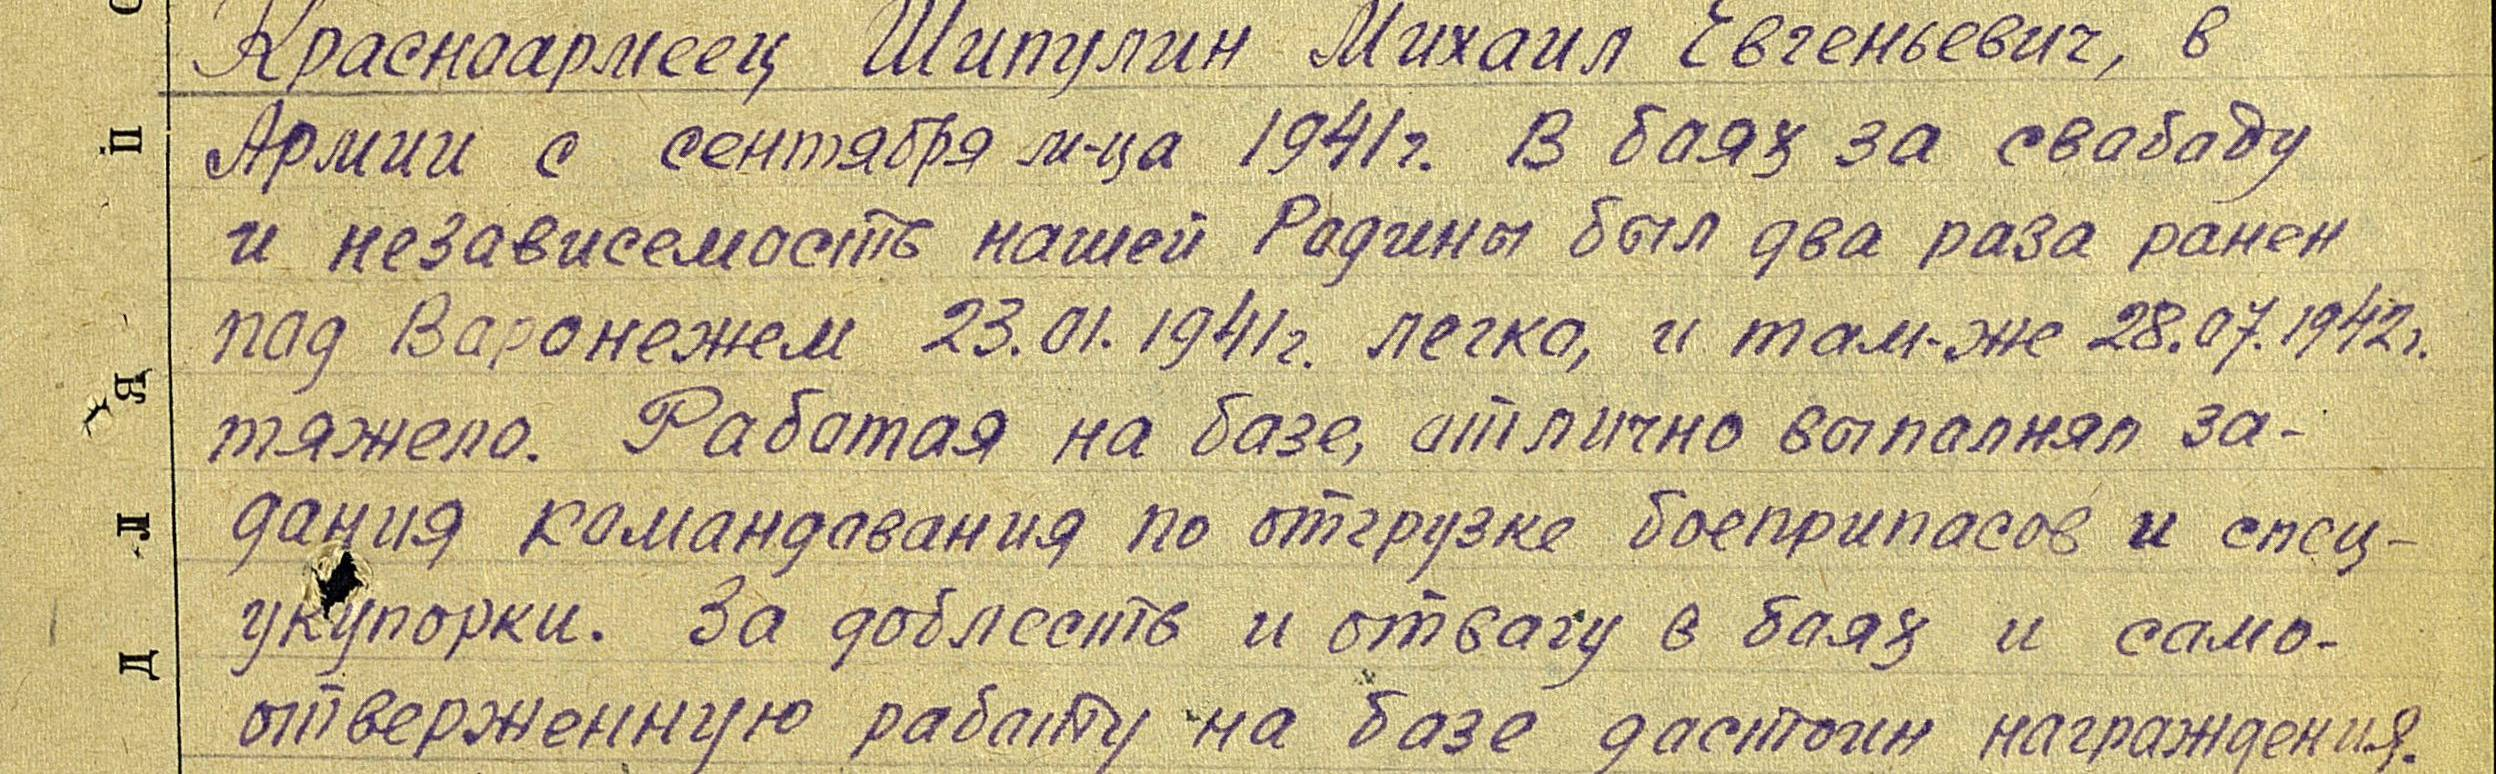 Красноармеец Шипулин Михаил Евгеньевич, в
Армии с сентября м-ца 1941г. В баях за свабаду
и независемасть нашей Радины был два раза ранен
пад Варонежем 23.01.1941г. легко, и там-же 28.07.1942г.
тяжело. Работая на базе, отлично выпалнял за-
дания командавания по отгрузке боеприпасов и спец-
укупорки. За доблесть и отвагу в баях и само-
отверженную работу на базе дастоин награждения.